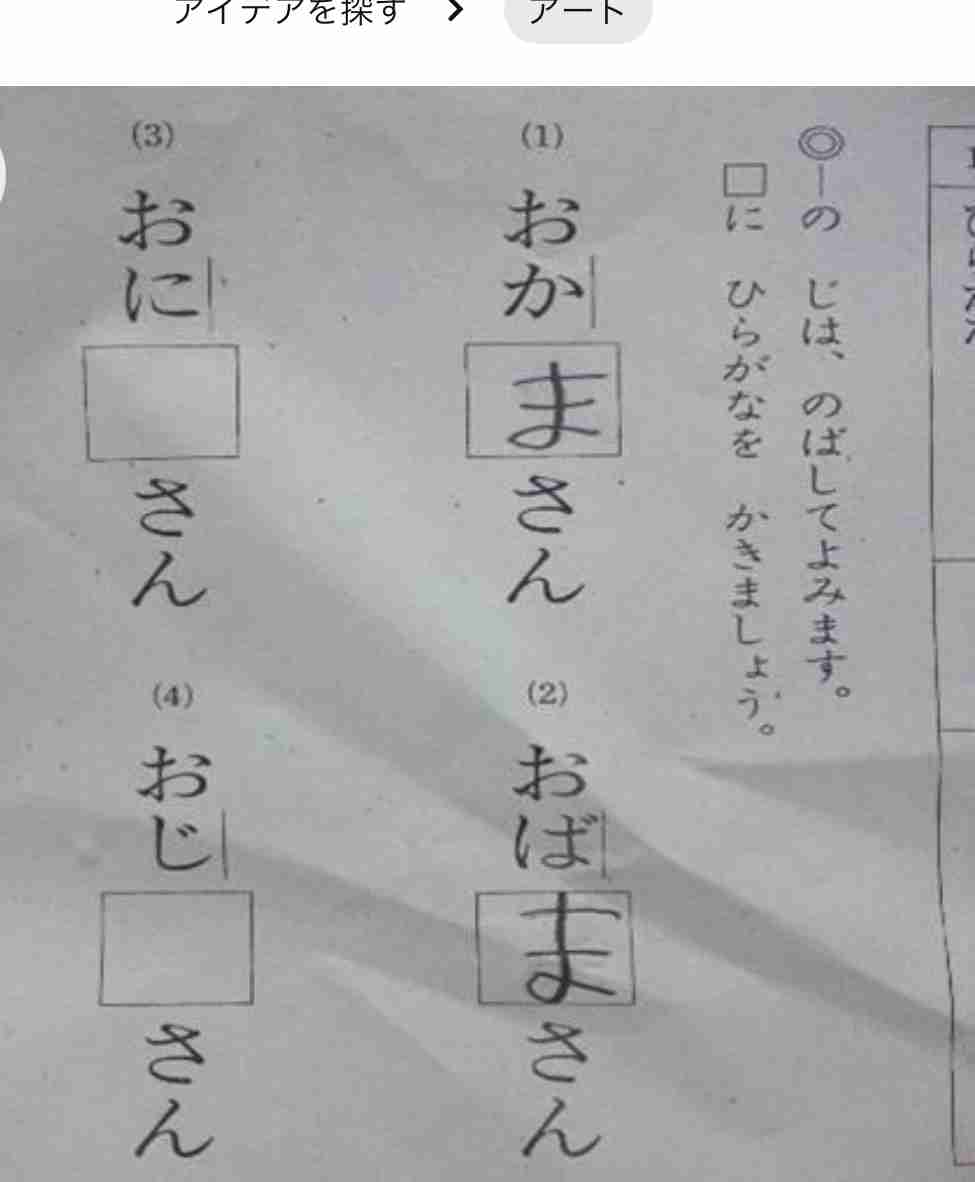 アイデアを探す > アート
◎―の じは、のばしてよみます。
□に ひらがなを かきましょう。
(1) おかまさん
(2) おばまさん
(3) おに□さん
(4) おじ□さん